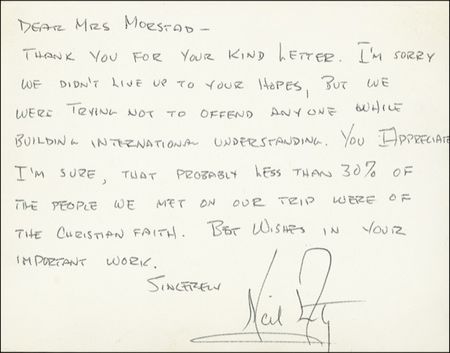 DEAR MRS MORSTAD -
THANK YOU FOR YOUR KIND LETTER. I'M SORRY
WE DIDN'T LIVE UP TO YOUR HOPES, BUT WE
WERE TRYING NOT TO OFFEND ANYONE WHILE
BUILDING INTERNATIONAL UNDERSTANDING. YOU APPRECIATE
I'M SURE, THAT PROBABLY LESS THAN 30% OF
THE PEOPLE WE MET ON OUR TRIP WERE OF
THE CHRISTIAN FAITH. BEST WISHES IN YOUR
IMPORTANT WORK.
SINCERELY
Neil